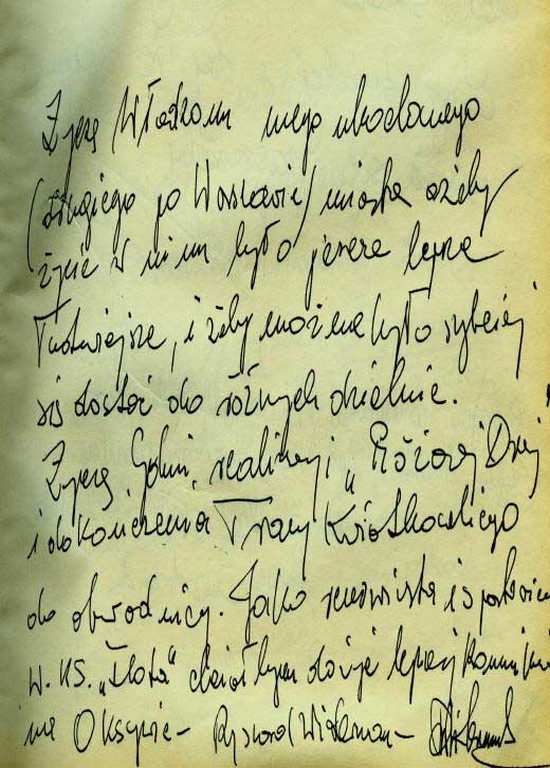 Życzę Władzom mego ukochanego
(drugiego po Warszawie) miasta ażeby
życie w nim było jeszcze lepsze
łatwiejsze, i żeby można było szybciej
się dostać do różnych dzielnic.
Życzę Gdyni, realizacji „Różowej Drogi
i dokończenia Trasy Kwiatkowskiego
do obwodnicy. Jako rezerwista i sportowiec
W.KS. „Flota" chciałbym dożyć lepszej komunikacji
na Oksywie - Ryszard